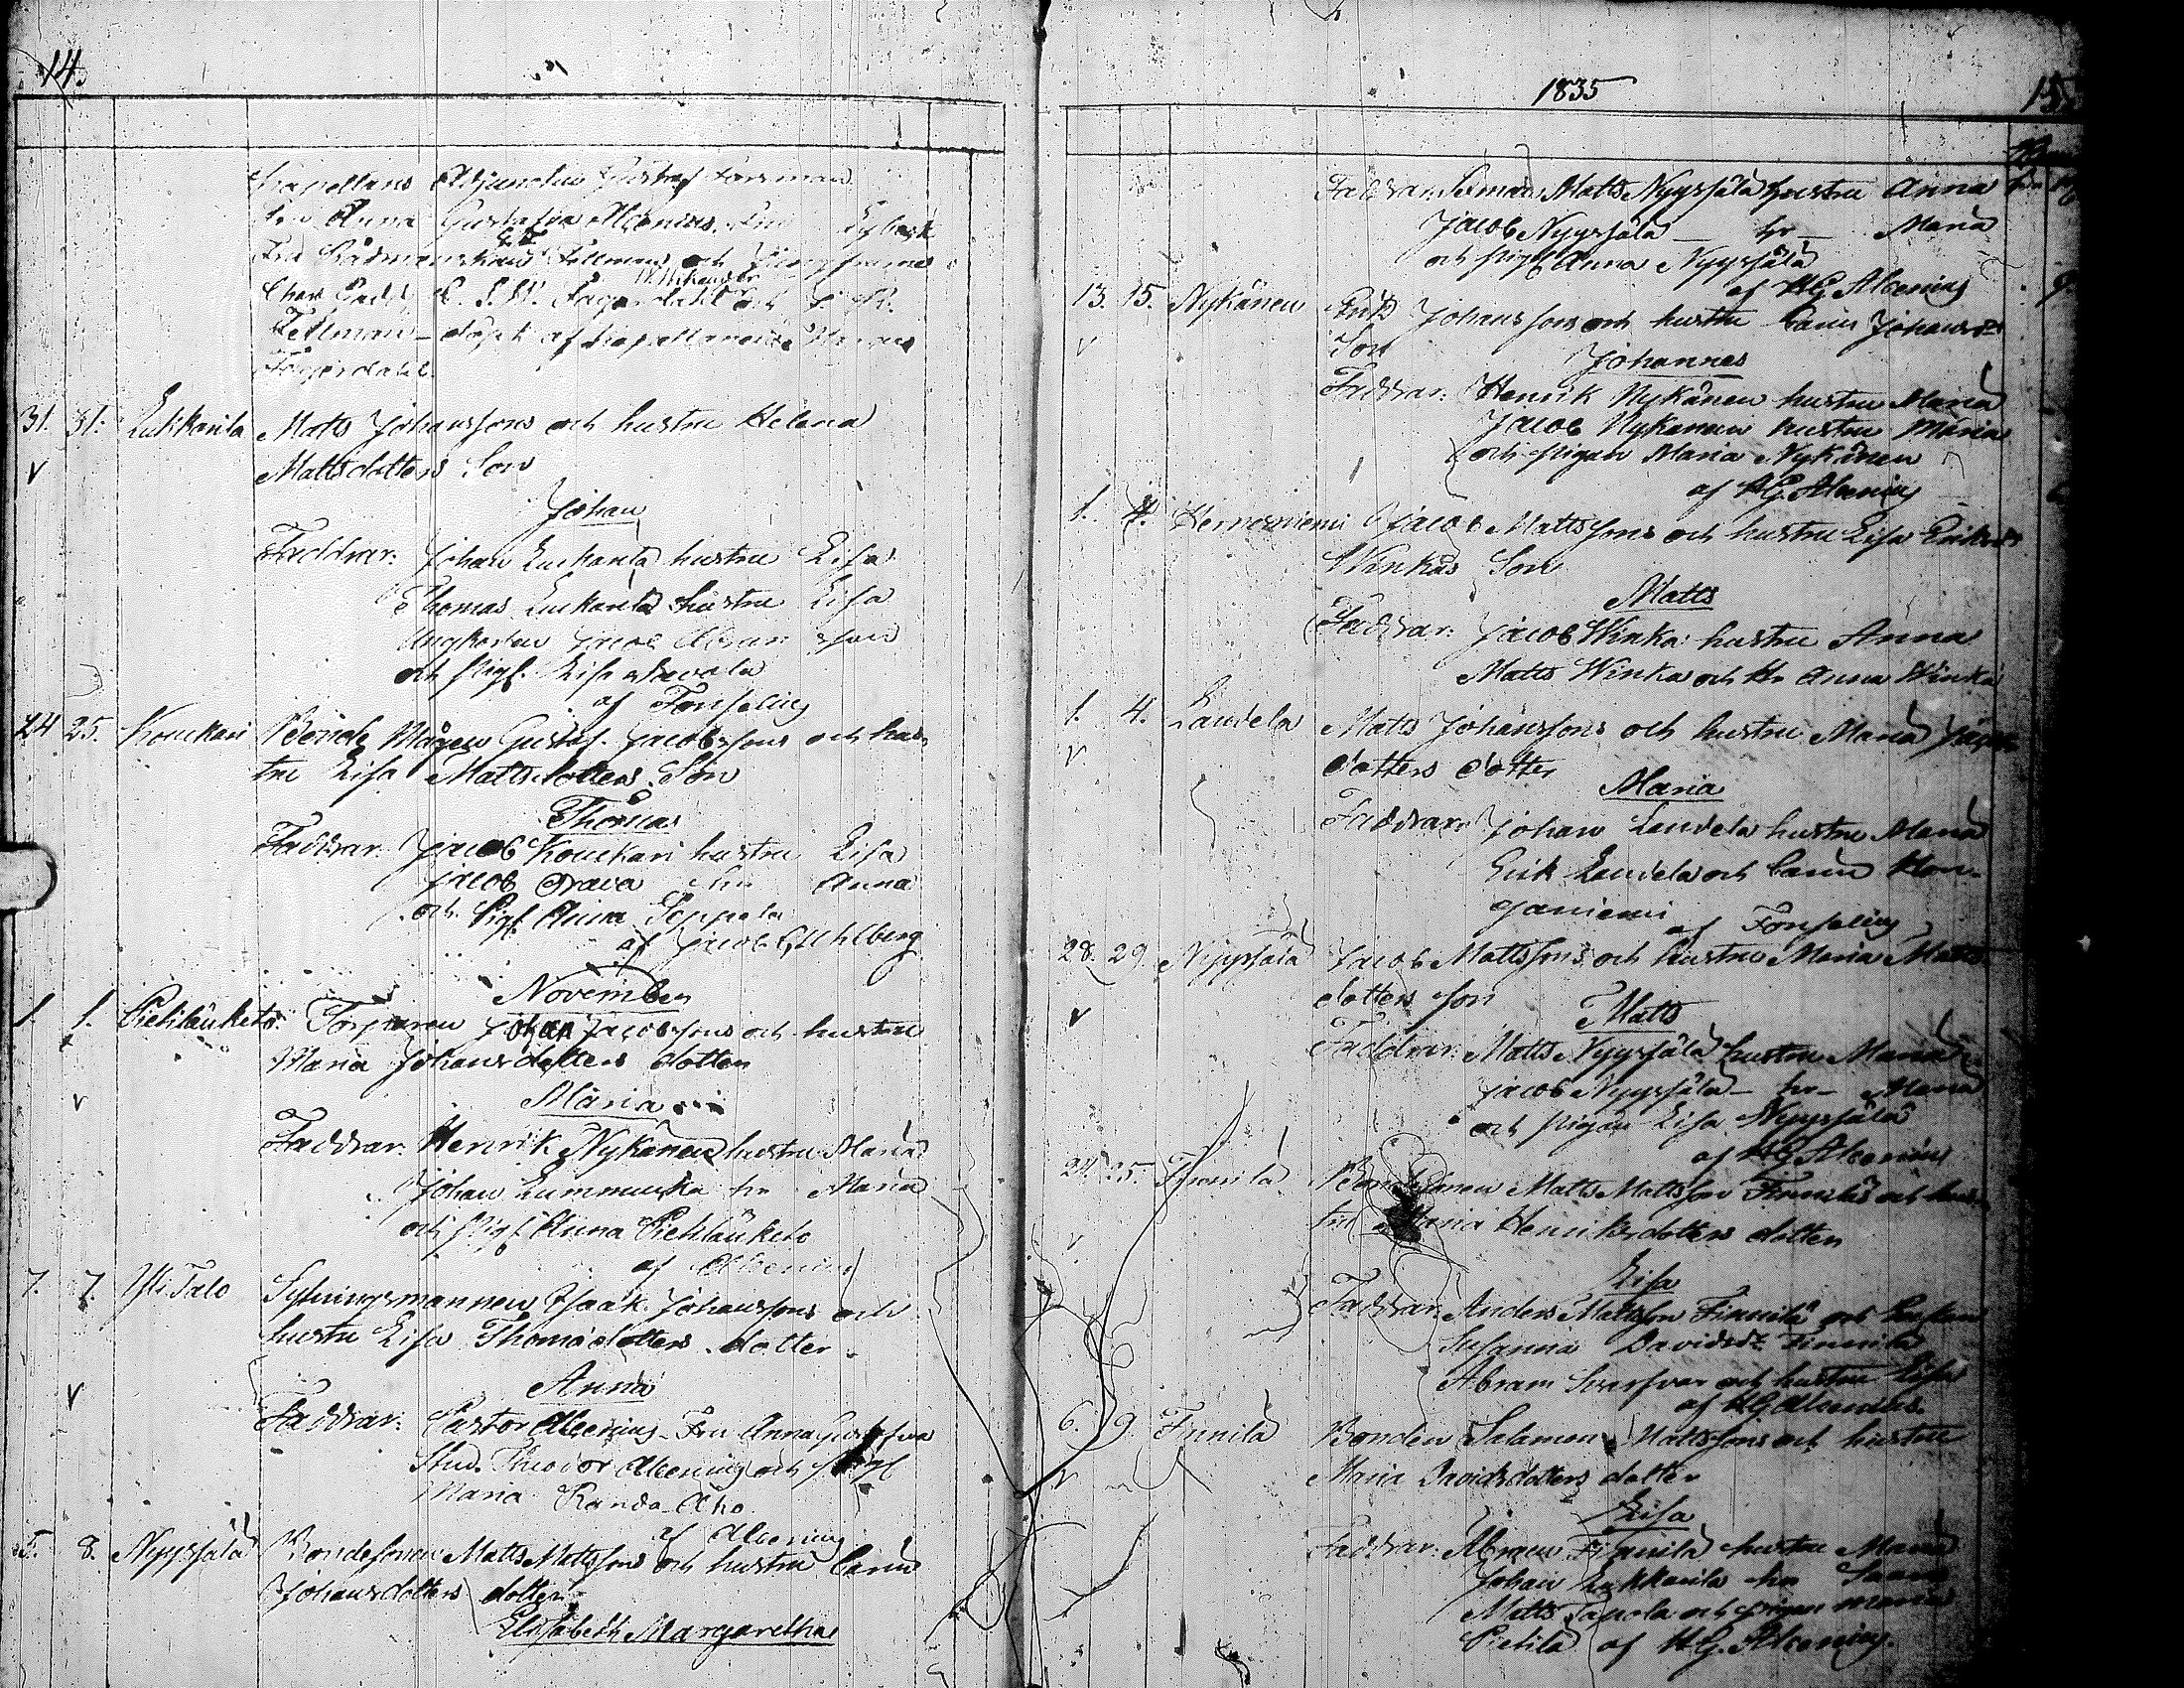 14.
Capellans Adjuncten Gustaf Forsman
Fru Anna Gustafva Alcenius, Fru
Fru Rådmanskan Fellman och Jungfrurna
Fagerdahl och
Fellman – döpt af Capellanen
Fagerdahl.
31. 31. Lukkarila Matts Johanssons och hustru Helena
v Mattsdotters Son
Johan
Faddrar: Johan Luckarila hustru Lisa
Thomas Luckarila hustru Lisa
Ungkarlen Jacob
och pig. Lisa
af Forselius
24 25. Kouckari Bonde Mågen Gustaf Jacobssons och hus-
tru Lisa Mattsdotters Son
Thomas
Faddrar: Jacob Kouckari hustru Lisa
Jacob hu Anna
och Pig. Anna Seppälä
af Jacob Uhlberg
November
1. 1. Pietiläuketo. Torparen Johan Jacobssons och hustru
Maria Johansdotters dotter
v Maria
Faddrar: Henrik Nykänen hustru Maria
Johan Lummukka hu Maria
och pig. Anna Pietiläuketo
af Alcenius
7. 7. Yli Talo Syningsmannen Isaak Johanssons och
hustru Lisa Thomædotters dotter
v Anna
Faddrar: Pastor Alcenius, Fru Anna Gustafva
Stud. Theodor Alcenius och pig
Maria Randa Aho
af Alcenius
5. 8. Nyyssälä Bondesonen Matts Mattssons och hustru Carin
Johansdotters dotter
Elisabeth Margaretha
1835
15.
Faddrar: Matts Nyyssälä hustru Anna
Jacob Nyyssälä – hr – Maria
och pig. Anna Nyyssälä
af HG Alcenius
13. 15. Nykänen Johanssons och hustru Carin Johansdr
v Son Johannes
Faddrar: Henrik Nykänen hustru Maria
Jacob Nykänen hustru Maria
och pigan Maria Nykänen
af HG Alcenius
1. 4. Hernesniemi Jacob Mattssons och hustru Lisa Eriksdr
Winkas Son
Matts
Faddrar: Jacob Winka hustru Anna
Matts Winka och Hr Anna Winka
1. 4. Laudela Matts Johanssons och hustru Maria
v dotters dotter
Maria
Faddrar: Johan Laudela hustru Maria
Erik Laudela och Carin Kon-
ganiemi
af Forselius
28. 29. Nyyssälä Jacob Mattssons och hustru Maria Matts
v dotters son
Matts
Faddrar: Matts Nyyssälä hustru Maria
Jacob Nyyssälä – hr – Maria
och pigan Lisa Nyyssälä
af HG Alcenius
24. 25. Finnilä Bondsonen Matts Mattsson Finnilä och hus-
v tru Maria Henriksdotters dotter
Lisa
Faddrar: Anders Mattsson Finnilä och hustrun
Susanna Davidsdr Finnilä
Abram och hustru Lisa
af HG Alcenius.
6. 9. Finnilä Bonden Salomon Mattssons och hustru
v Maria Davidsdotters dotter
Lisa
Faddrar: Abram Finnilä hustru Maria
Johan Lukkarila hr
Matts och pigan Maria
Pietilä af HG. Alcenius.